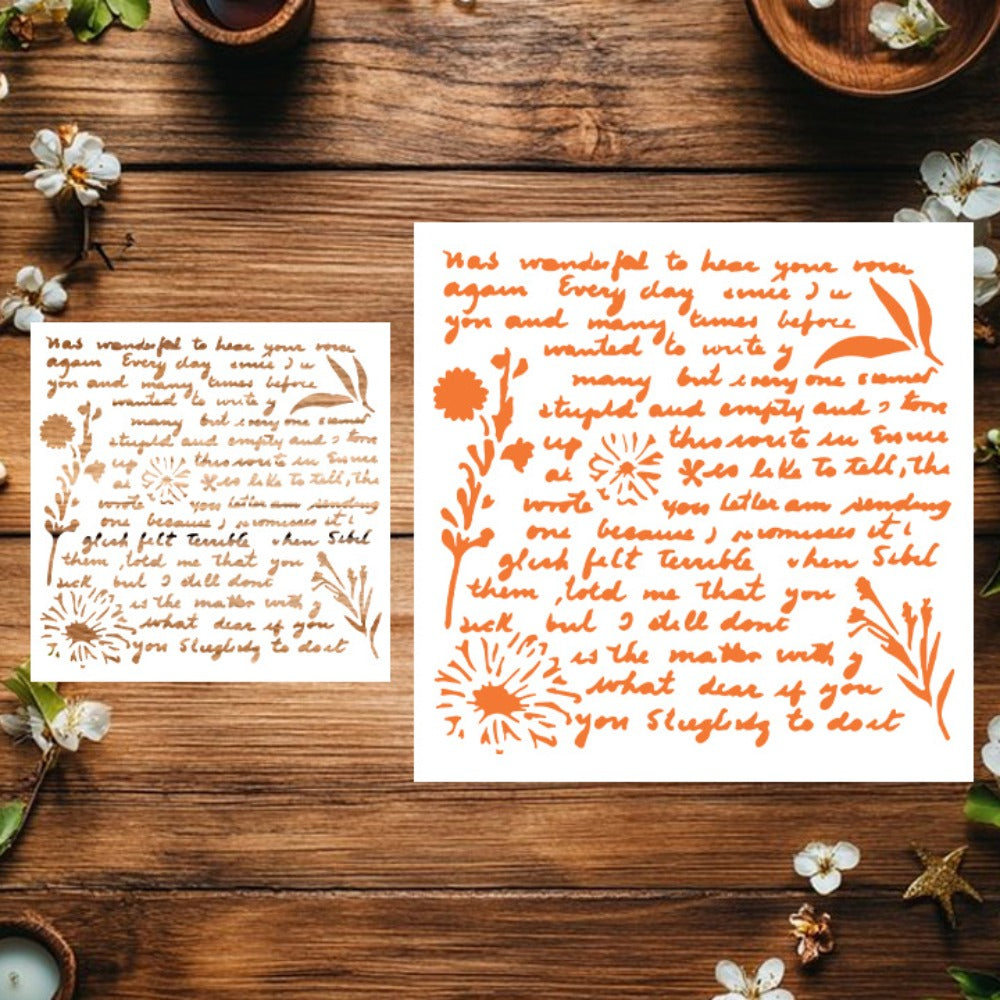 was wonderful to hear your voice
again Every day since I
you and many times before
wanted to write y
many but every one seemed
stupid and empty and I tore
up this write in
at like to tell, the
wrote your letter am sending
one because, promises it
glish felt Terrible when Sibel
them, told me that you
sick but I still dont
is the matter with y
what dear if you
you to do it
was wonderful to hear your voice
again Every day since I
you and many times before
wanted to write y
many but every one seemed
stupid and empty and I tore
up this write in
at like to tell, the
wrote your letter am sending
one because, promises it
glish felt Terrible when Sibel
them, told me that you
sick but I still dont
is the matter with y
what dear if you
you to do it